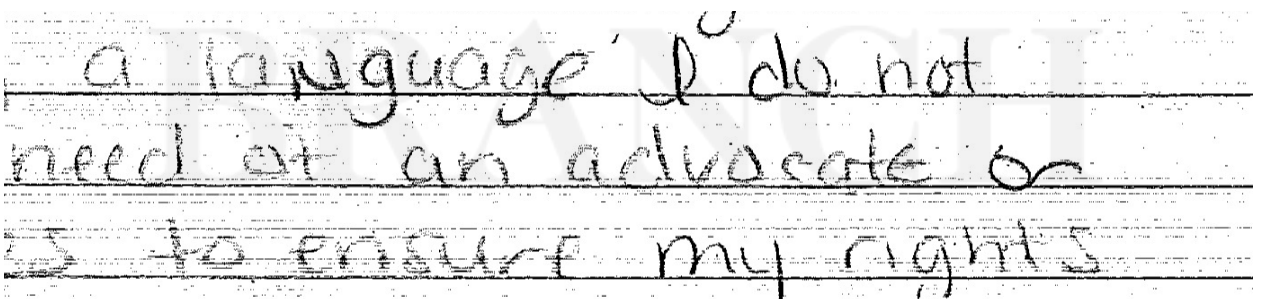 a language I do not
need of an advocate or
to ensure my rights
BRANCH